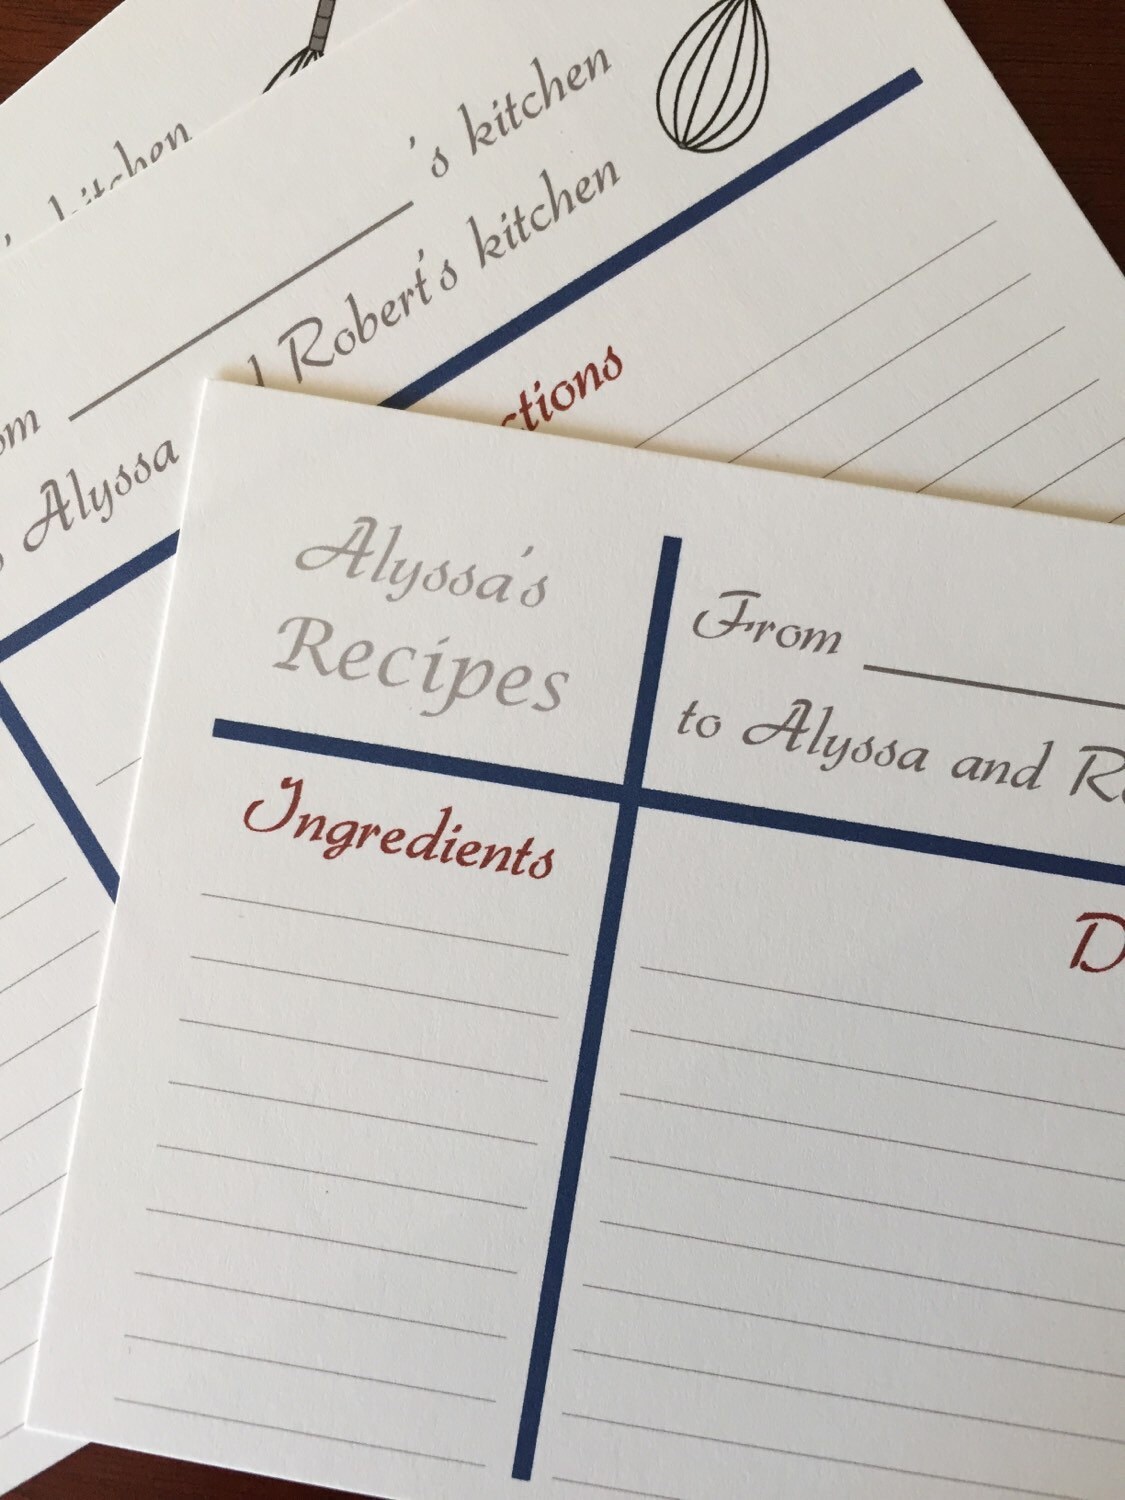 kitchen
's kitchen
Alyssa Robert's kitchen
Alyssa's
Recipes
From
to Alyssa and
Ingredients